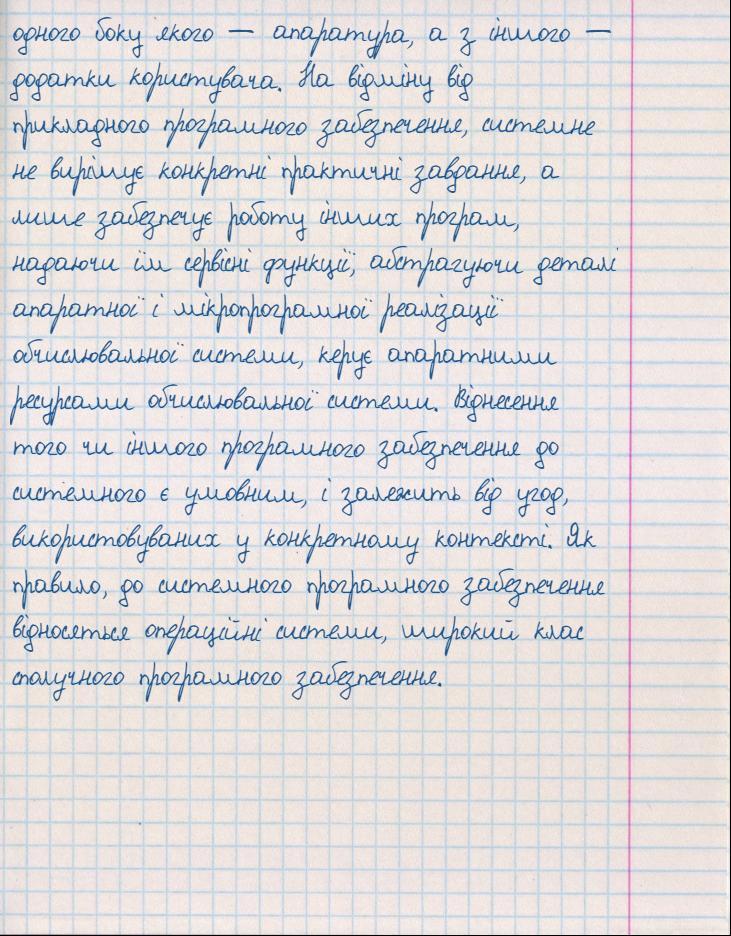 одного боку якого — апаратура, а з іншого —
додатки користувача. На відміну від
прикладного програмного забезпечення, системне
не вирішує конкретні практичні завдання, а
лише забезпечує роботу інших програм,
надаючи їм сервісні функції, абстрагуючи деталі
апаратної і мікропрограмної реалізації
обчислювальної системи, керує апаратними
ресурсами обчислювальної системи. Віднесення
того чи іншого програмного забезпечення до
системного є умовним, і залежить від угод,
використовуваних у конкретному контексті. Як
правило, до системного програмного забезпечення
відносяться операційні системи, широкий клас
сполучного програмного забезпечення.